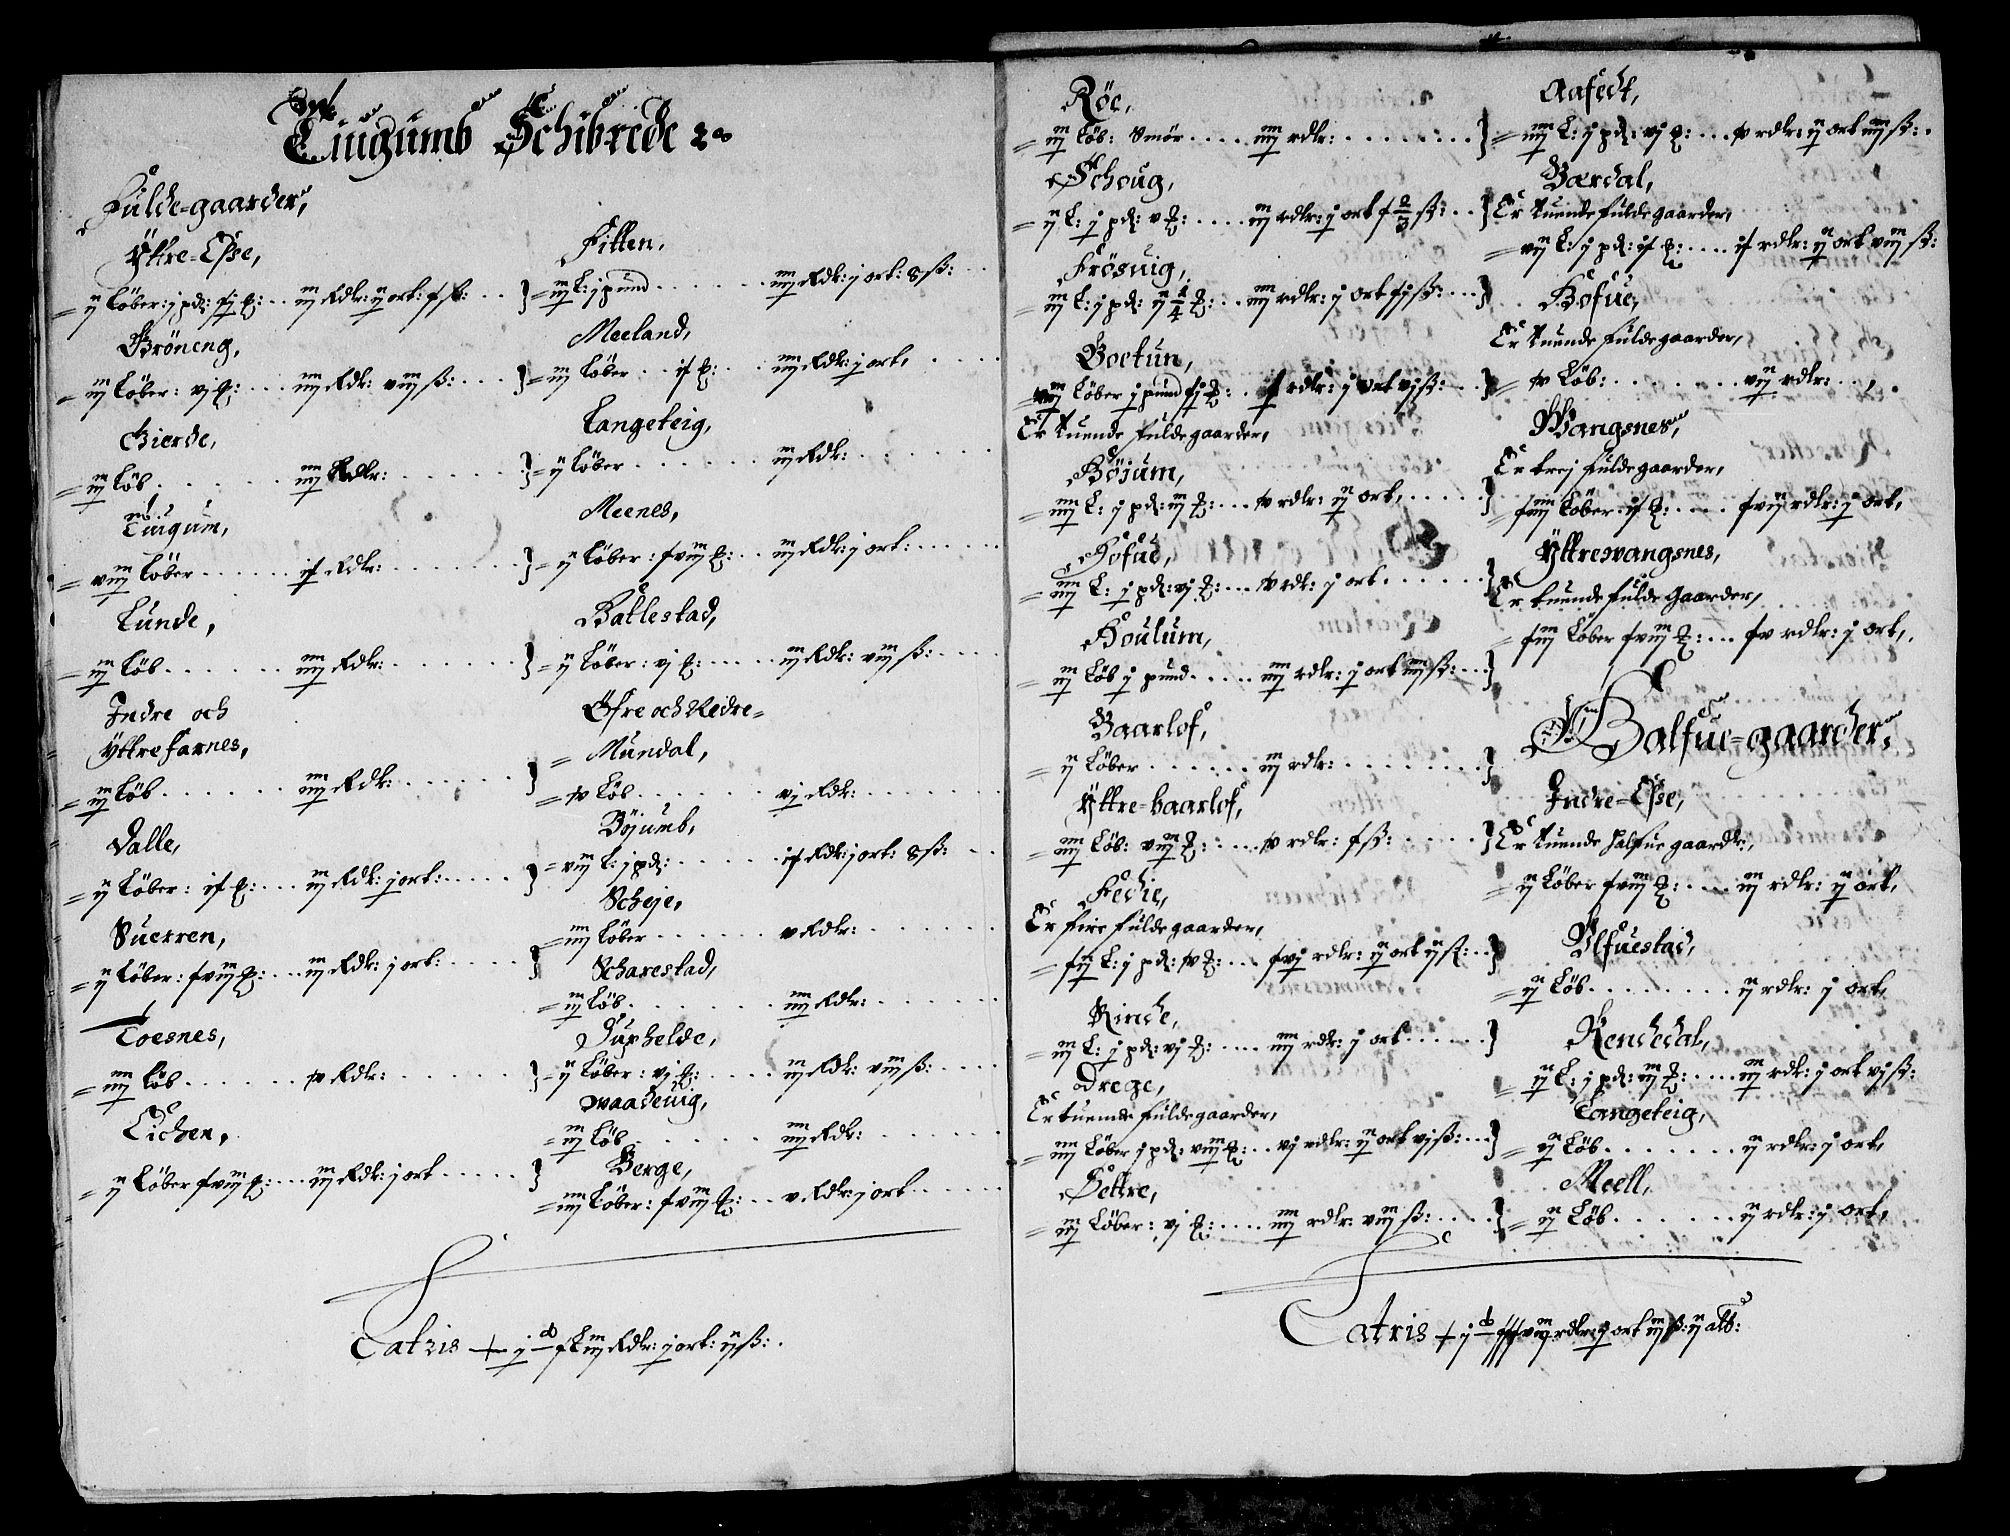 Tiugumb Schibrede
Fulde=gaarder,
Yttre=Esse,
ij Löber: j pd: fj [?]: ... iij Rdlr: ij ort: f ß:
Gröneng,
iij Löber: vj [?]: ... iiij Rdlr: viij ß:
Gierde,
iij Löb ... iiij Rdlr:
Tuigum,
viij Löber ... if Rdlr:
Lunde,
iij Löb ... iiij Rdlr:
Indre och
Yttre farnes,
iij Löb ... iiij Rdlr:
Dalle,
ij Löber: if [?]: ... iij Rdlr: j ort:
Suerren,
ij Löber: fviij [?]: ... iij Rdlr: j ort:
Toesnes,
iiij Löb ... fv Rdlr:
Eichen,
ij Löber fviij [?]: ... iij Rdlr: j ort
Fitten,
iij L: j pund ... iiij Rdlr: j ort: 8 ß:
Meeland,
iij Löber .. if [?]: ... iiij Rdlr: j ort,
Langeteig,
ij Löber ... iij Rdlr:
Meenes,
ij Löber: fviij [?]: ... iij Rdlr: j ort:
Batlestad,
ij Löber: vj [?]: ... iij Rdlr: viij ß:
Öfre och Nedre=
Mundal,
fv Löb ... vj Rdlr:
Böjumb,
viij L: j pd: ... if Rdlr: j ort: 8 ß:
Scheje,
iiij Löber ... v Rdlr:
Scharestad,
iij Löb ... iiij Rdlr:
Juphelde,
ij Löber: vj [?]: ... iij Rdlr: viij ß:
vaadeuig,
iij Löb ... iiij Rdlr:
Berge,
iiij Löber: fviij [?]: ... v Rdlr: j ort
Latris
Röe,
iij Löb: Smör ... iiij rdlr:
Schoug,
ij L: j pd: v [?]: ... iij rdlr: j ort f 2/3 ß:
Frösuig,
iij L: j pd: ij 1/4 [?]: ... iiij rdlr: j ort fj ß:
Goetun,
Löber j pund fj [?]: .. if rdlr: j ort vj ß:
Er tuende fuldegaarder,
Böjum,
iiij L: j pd: iij [?]: ... fv rdlr: ij ort,
Hofud,
iiij L: j pd: vj [?]: ... fv rdlr: j ort
Houlum,
iij Löb j pund ... iiij rdlr: j ort iiij ß:
Baarlof,
ij Löber ... iij rdlr:
Yttre=baarlof,
iiij Löb: viij [?]: ... fv rdlr: f ß:
Fedie,
Er fire fuldegaarder,
fij L: j pd: fv [?]: ... fvj rdlr: ij ort ij ß:
Rinde,
iij L: j pd: vj [?]: ... iiij rdlr: j ort
Drege,
Er tuende fuldegaarder,
iiij Löber j pd: viij [?]: .. vj rdlr: ij ort vj ß:
Settre,
iij Löber: vj [?]: ... iiij rdlr: viij ß:
Aafedt,
iiij L: j pd: vj [?]: ... fv rdlr: ij ort iiij ß:
Bærdal,
Er tuende fulde gaarder,
vij L: j pd: if [?]: ... if rdlr: ij ort viij ß:
Hofue,
Er tuende fulde gaarder,
fv Löb: ... vij rdlr:
Wangsnes,
Er trej fuldegaarder,
fiiij Löber: if [?]: ... fvij rdlr: j ort,
Yttrevangsnes,
Er tuende fulde gaarder,
fiij Löber fviij [?]: ... fv rdlr: j ort,
Halfue=gaarder,
Indre=Esse,
Er tuende halfue gaardr,
ij Löber fviij [?]: ... iij rdlr: ij ort,
Ulfuestad,
ij Löb ... ij rdlr: j ort,
Rendedal,
ij L: j pd: iij [?]: ... iij rdlr: j ort vj ß:
Tangeteig,
ij Löb ... ij rdlr: j ort,
Meell,
ij Löb ... ij rdlr: j ort,
Latris